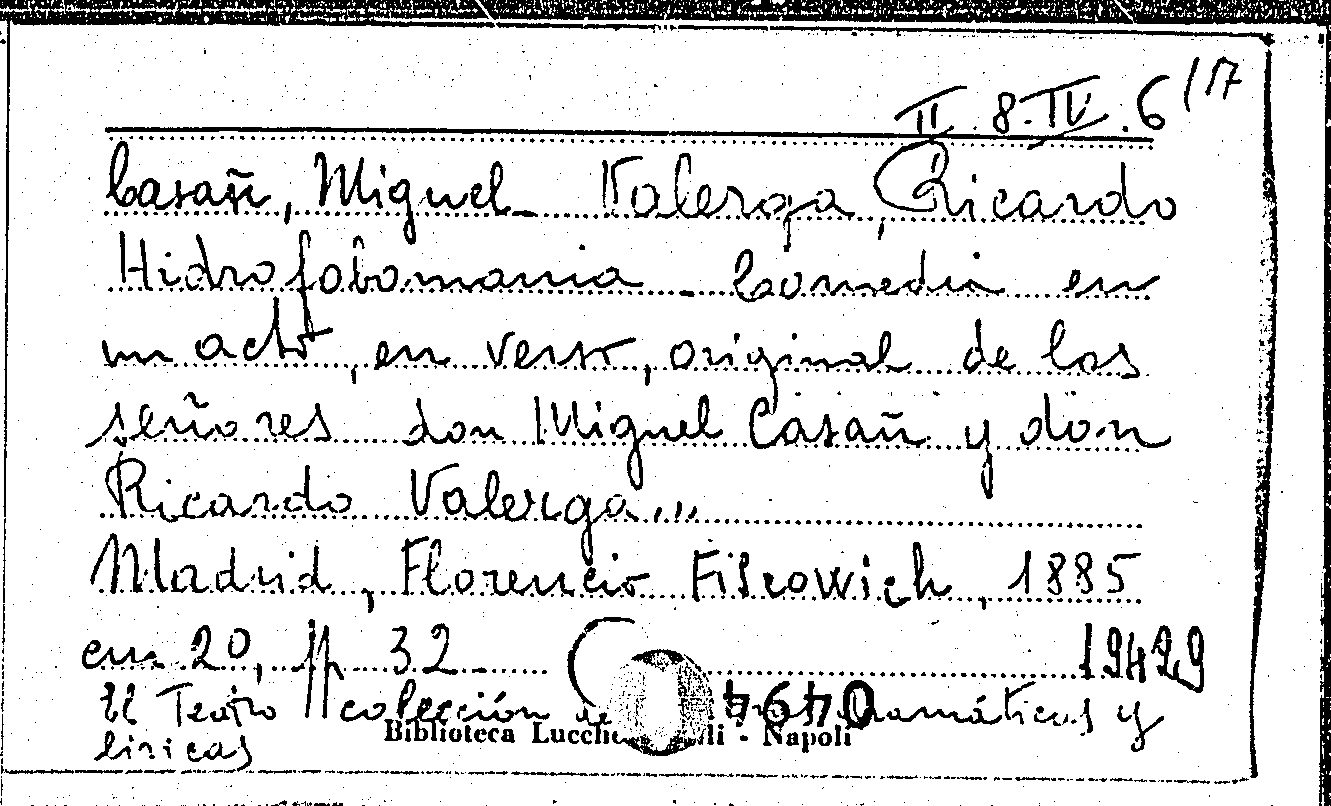 II. 8. IV. 6 /17
Casañ, Miguel - Valerga, Ricardo
Hidrofobomania - Comedia en
un acto, en verso, original de los
señores don Miguel Casañ y don
Ricardo Valerga...
Madrid, Florencio Fiscowich, 1885
cm 20, pp 32
19429
El Teatro colección de dramáticas y
liricas
Biblioteca Lucchesi Palli - Napoli